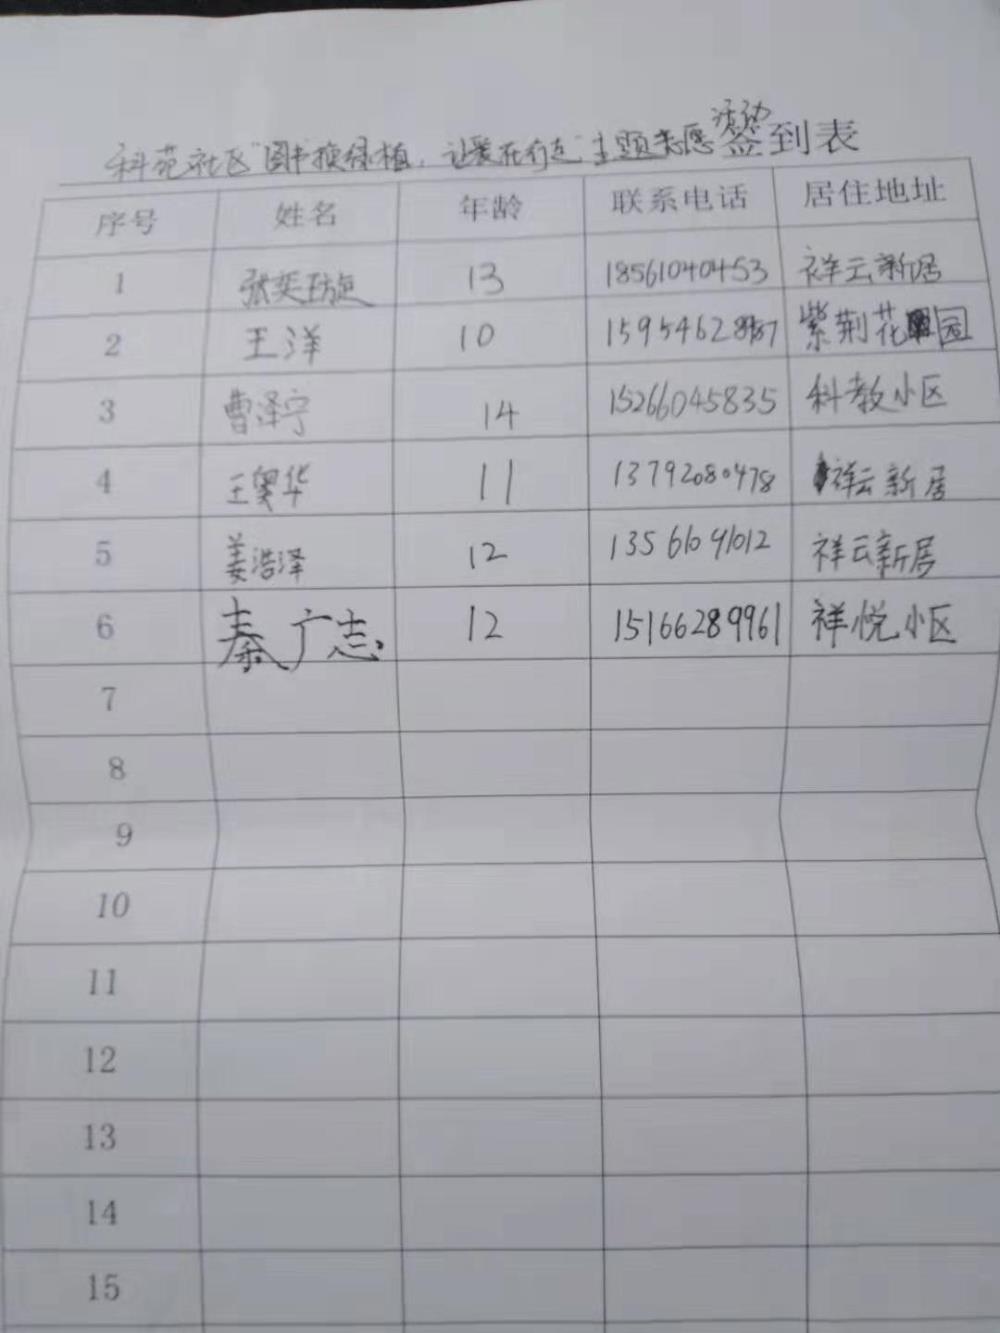 科苑社区"图书换绿植，让爱在行走"主题志愿活动签到表
序号 姓名 年龄 联系电话 居住地址
1 13 18561040453 祥云新居
2 王洋 10 紫荆花园
3 曹泽宁 14 15266045835 科教小区
4 11 13792080478 祥云新居
5 姜浩泽 12 13561091012 祥云新居
6 秦广志 12 15166289961 祥悦小区
7
8
9
10
11
12
13
14
15